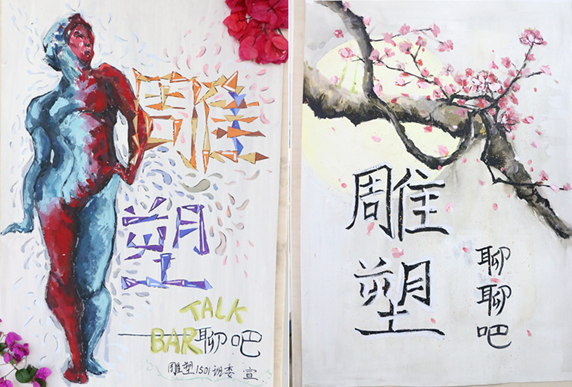 雕塑
TALK
BAR聊吧
雕塑1501班委 宣
雕塑
聊聊吧